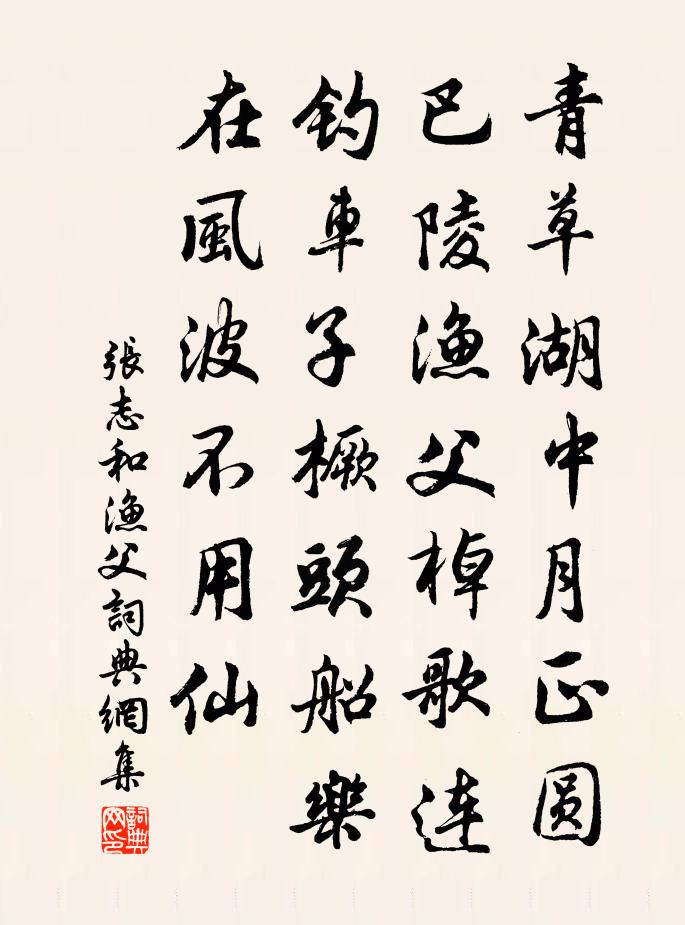 青草湖中月正圓
巴陵漁父棹歌連
釣車子橛頭船樂
在風波不用仙
張志和漁父詞典網集
詞典網印